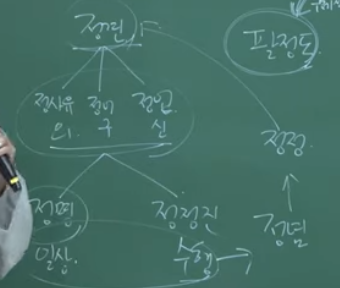 정견
팔정도
정사유 정어 정업
의 구 신
정정
정명 정정진 정념
일상 수행